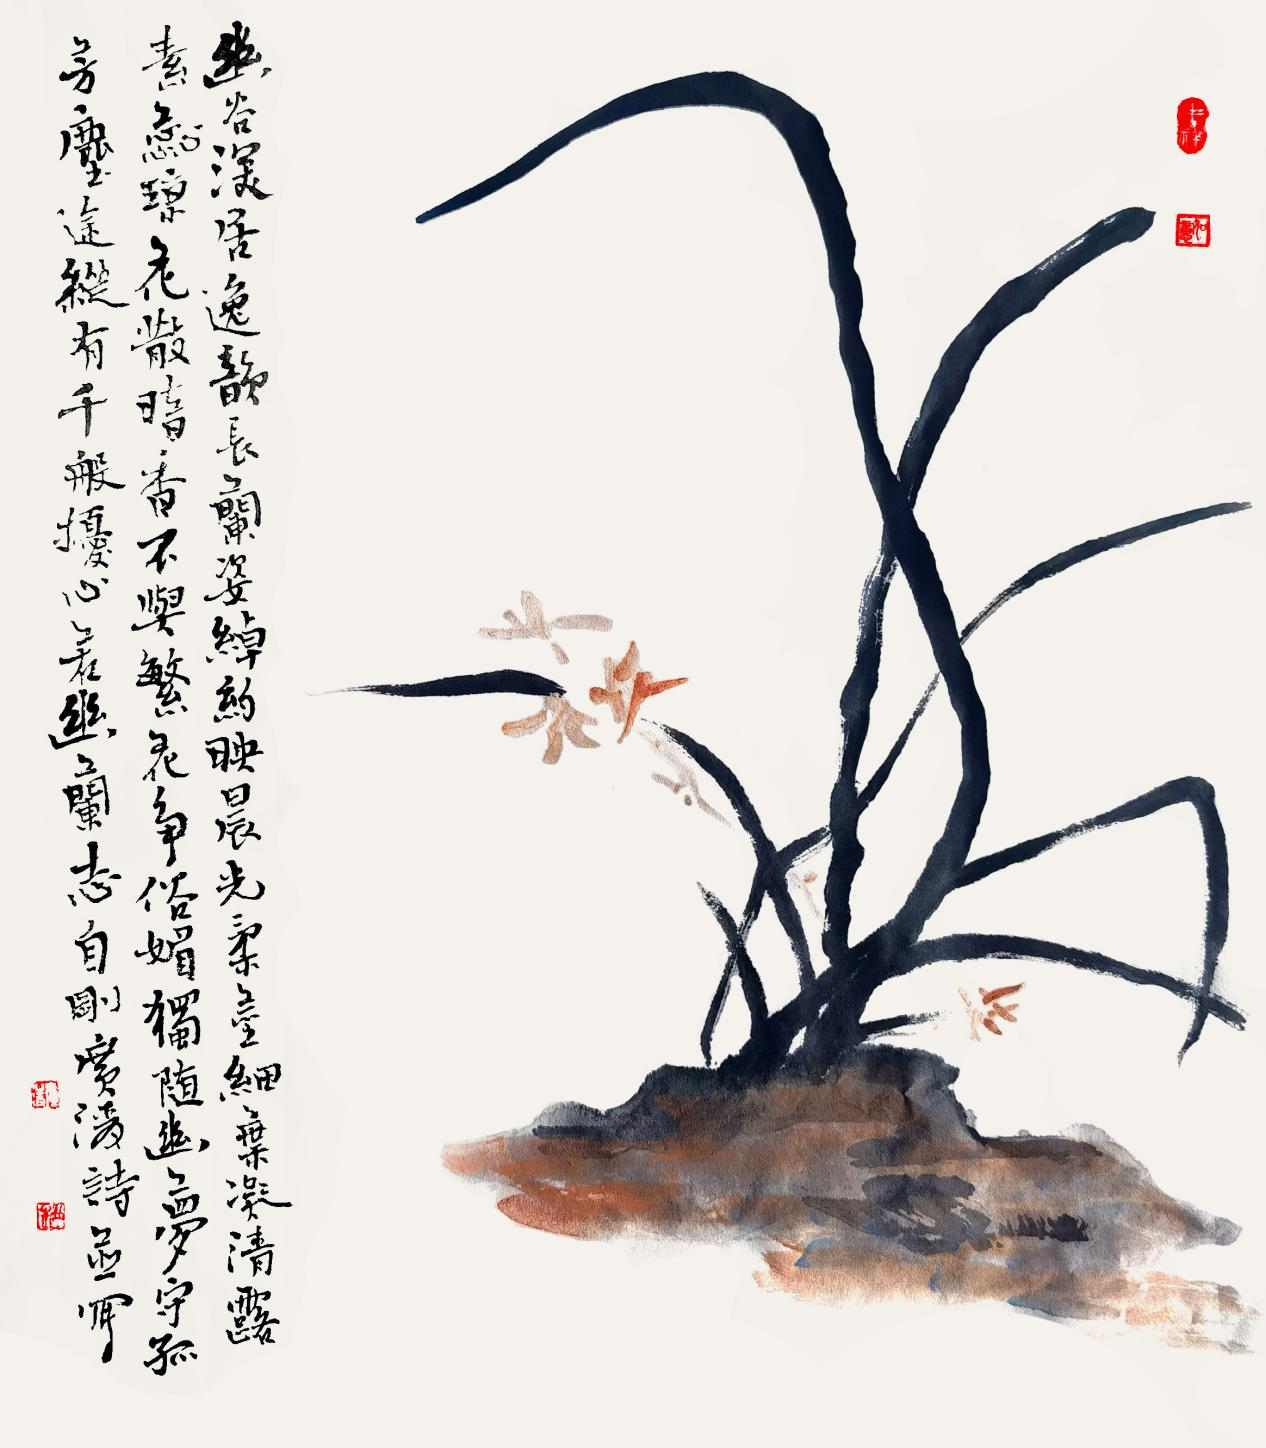 幽谷深居逸韻長蘭姿綽約映晨光柔莖細葉凝清露
素蕊瓊花散暗香不與繁花争俗媚獨随幽夢守孤
芳塵途縱有千般擾心若幽蘭志自剛廣陵詩並寫